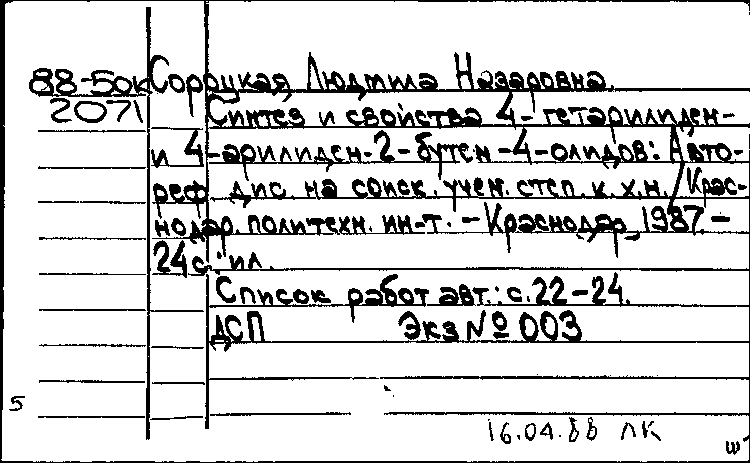 88-5ок Сороцкая Людмила Назаровна.
2071 Синтез и свойства 4-гетарилиден-
и 4-арилиден-2-бутен-4-олидов: Авто-
реф. дис. на соиск. учен. степ. к.х.н. / Крас-
нодар. политехн. ин-т. - Краснодар, 1987. -
24с. ил.
Список работ авт.: с.22-24.
ДСП Экз № 003
5
16.04.88 ЛК
ш-